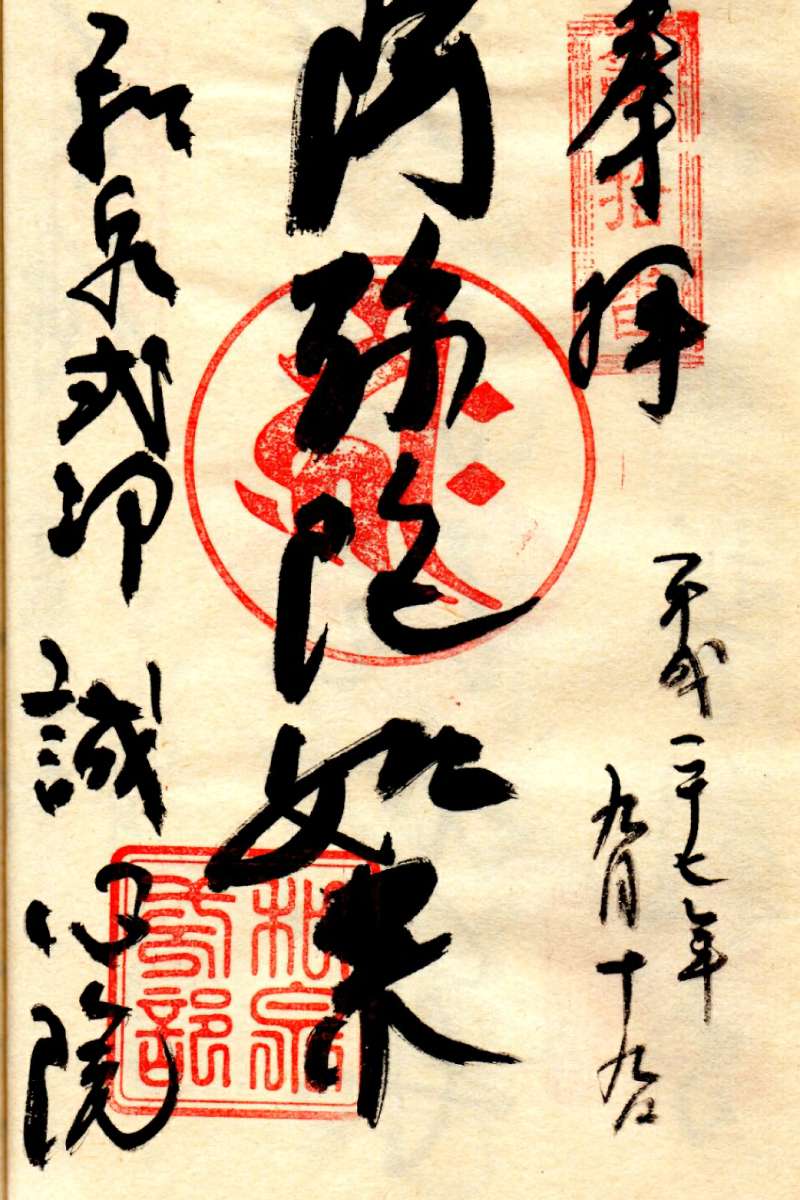 奉拝
平成二十七年
九月十九日
阿弥陀如来
和泉式部
和泉式部 誠心院